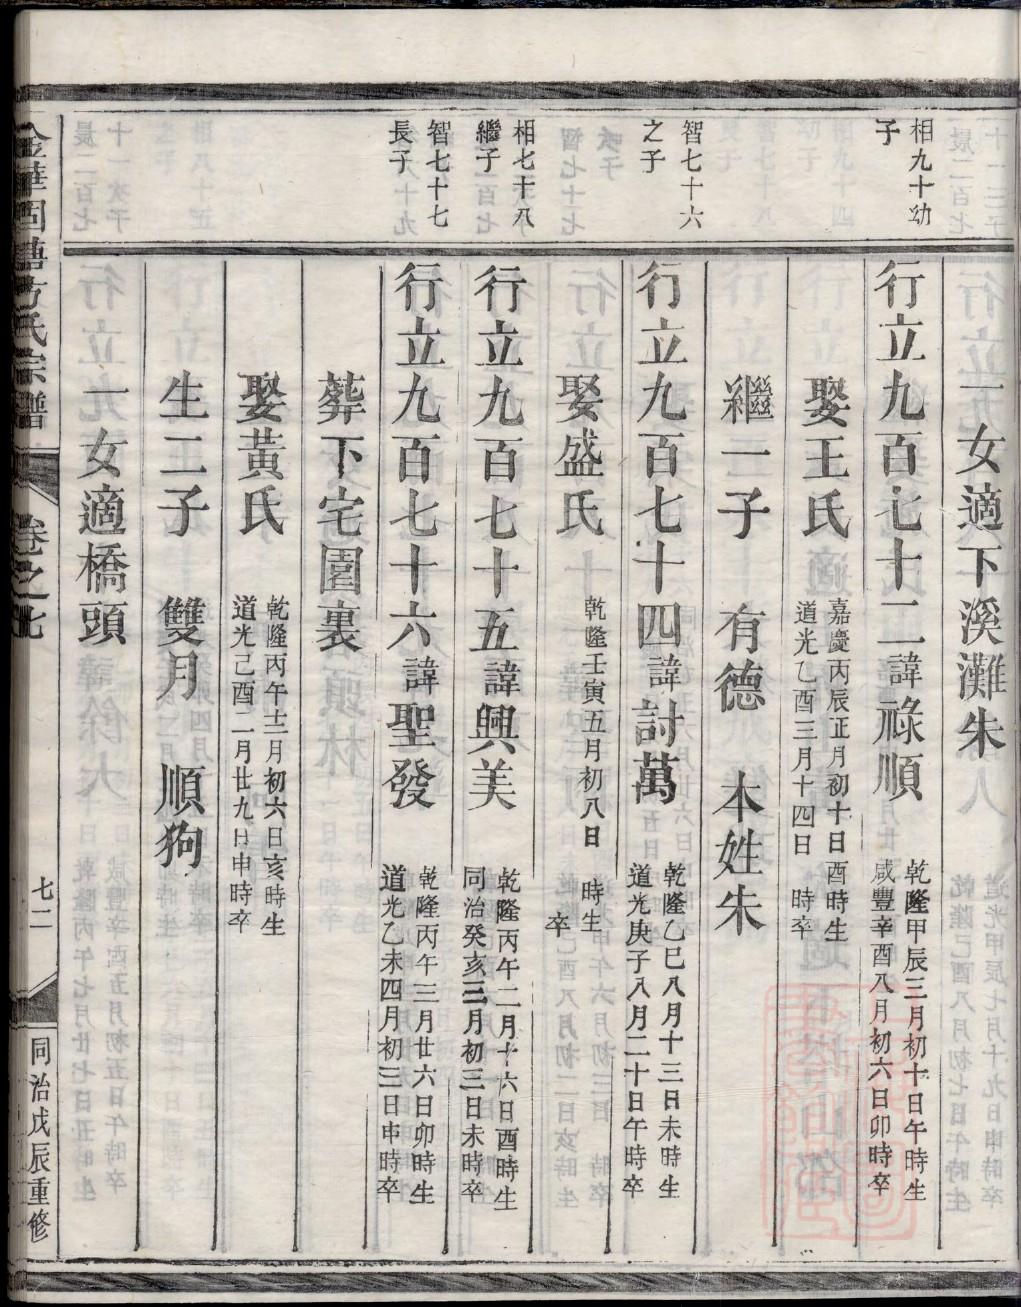 一女適下溪灘朱
相九十幼
子
行立九百七十二諱祿順
乾隆甲辰三月初十日午時生
咸豐辛酉八月初六日卯時卒
娶王氏
嘉慶丙辰正月初十日酉時生
道光乙酉三月十四日 時卒
繼一子 有德 本姓朱
智七十六
之子
行立九百七十四諱討萬
乾隆乙巳八月十三日未時生
道光庚子八月二十日午時卒
娶盛氏
乾隆壬寅五月初八日 時生
卒
相七十八
繼子
行立九百七十五諱興美
乾隆丙午二月十六日酉時生
同治癸亥三月初三日未時卒
智七十七
長子
行立九百七十六諱聖發
乾隆丙午三月廿六日卯時生
道光乙未四月初三日申時卒
葬下宅園裏
娶黃氏
乾隆丙午十二月初六日亥時生
道光己酉二月廿九日申時卒
生二子 雙月 順狗
一女適橋頭
金華固塘方氏宗譜
卷之七
七二
同治戊辰重修